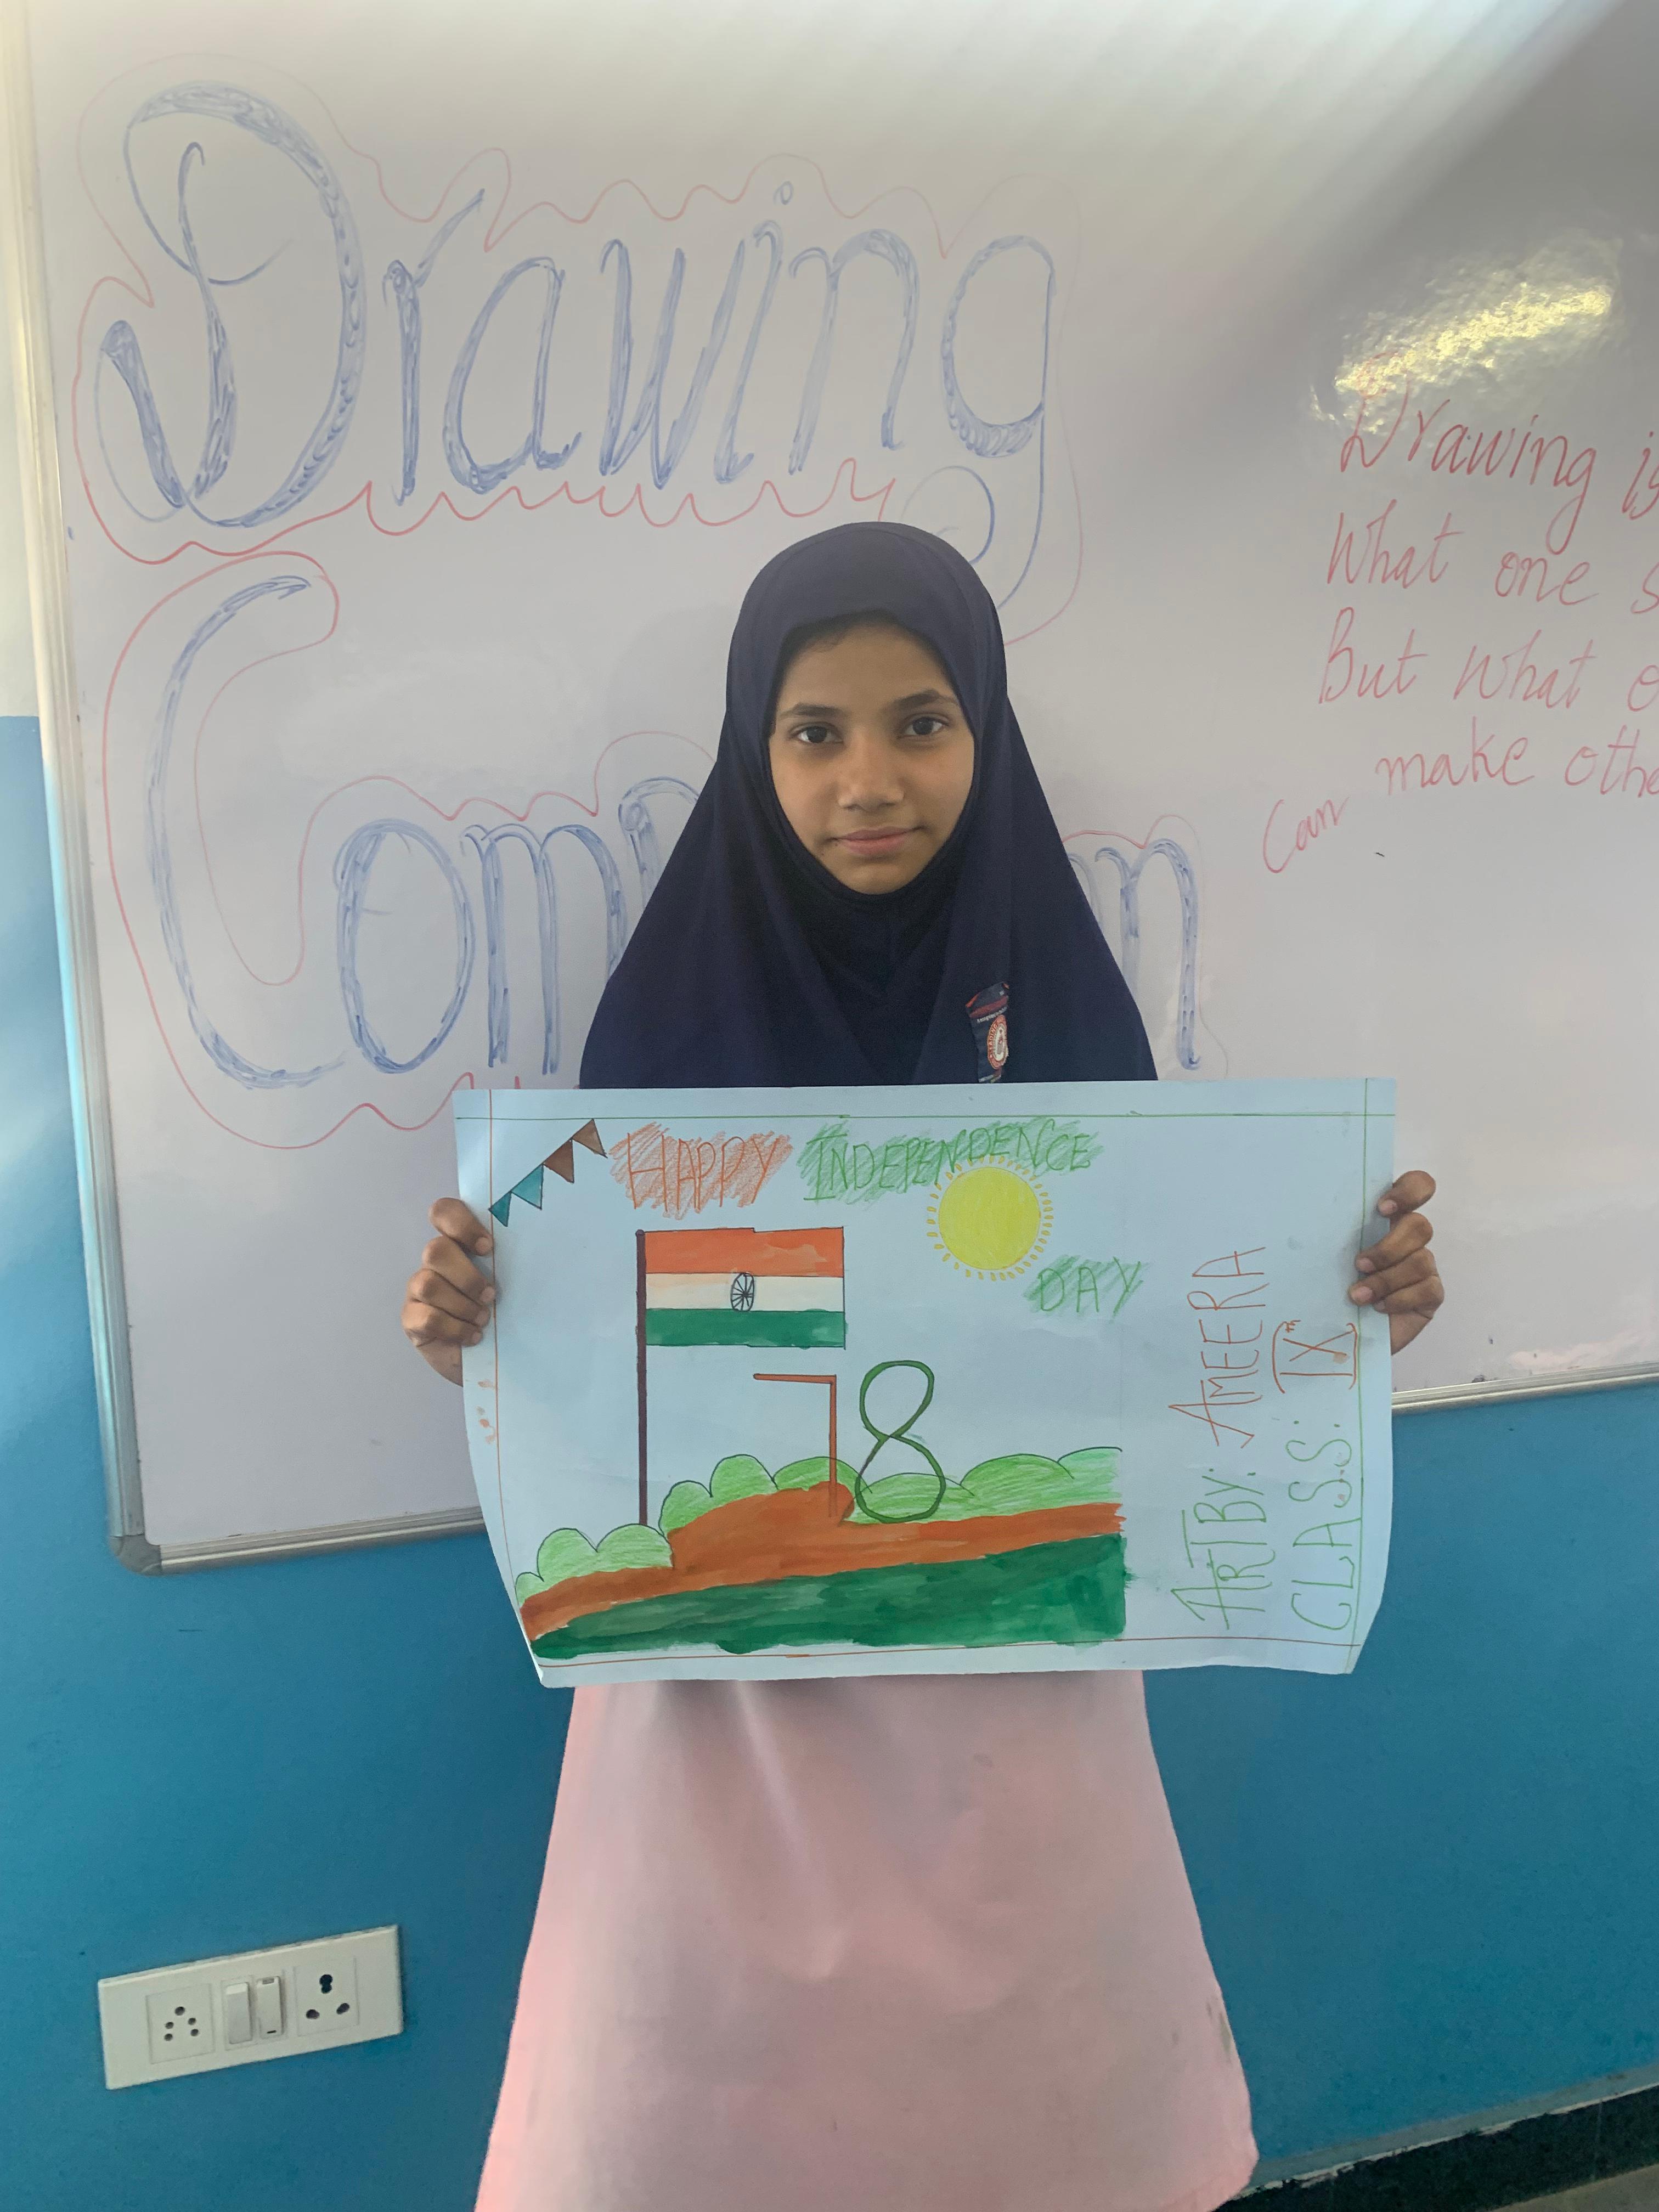 Drawing
Drawing
What one
But what
Can make
HAPPY INDEPENDENCE
DAY
78
ART BY: AMEERA
CLASS: IXth